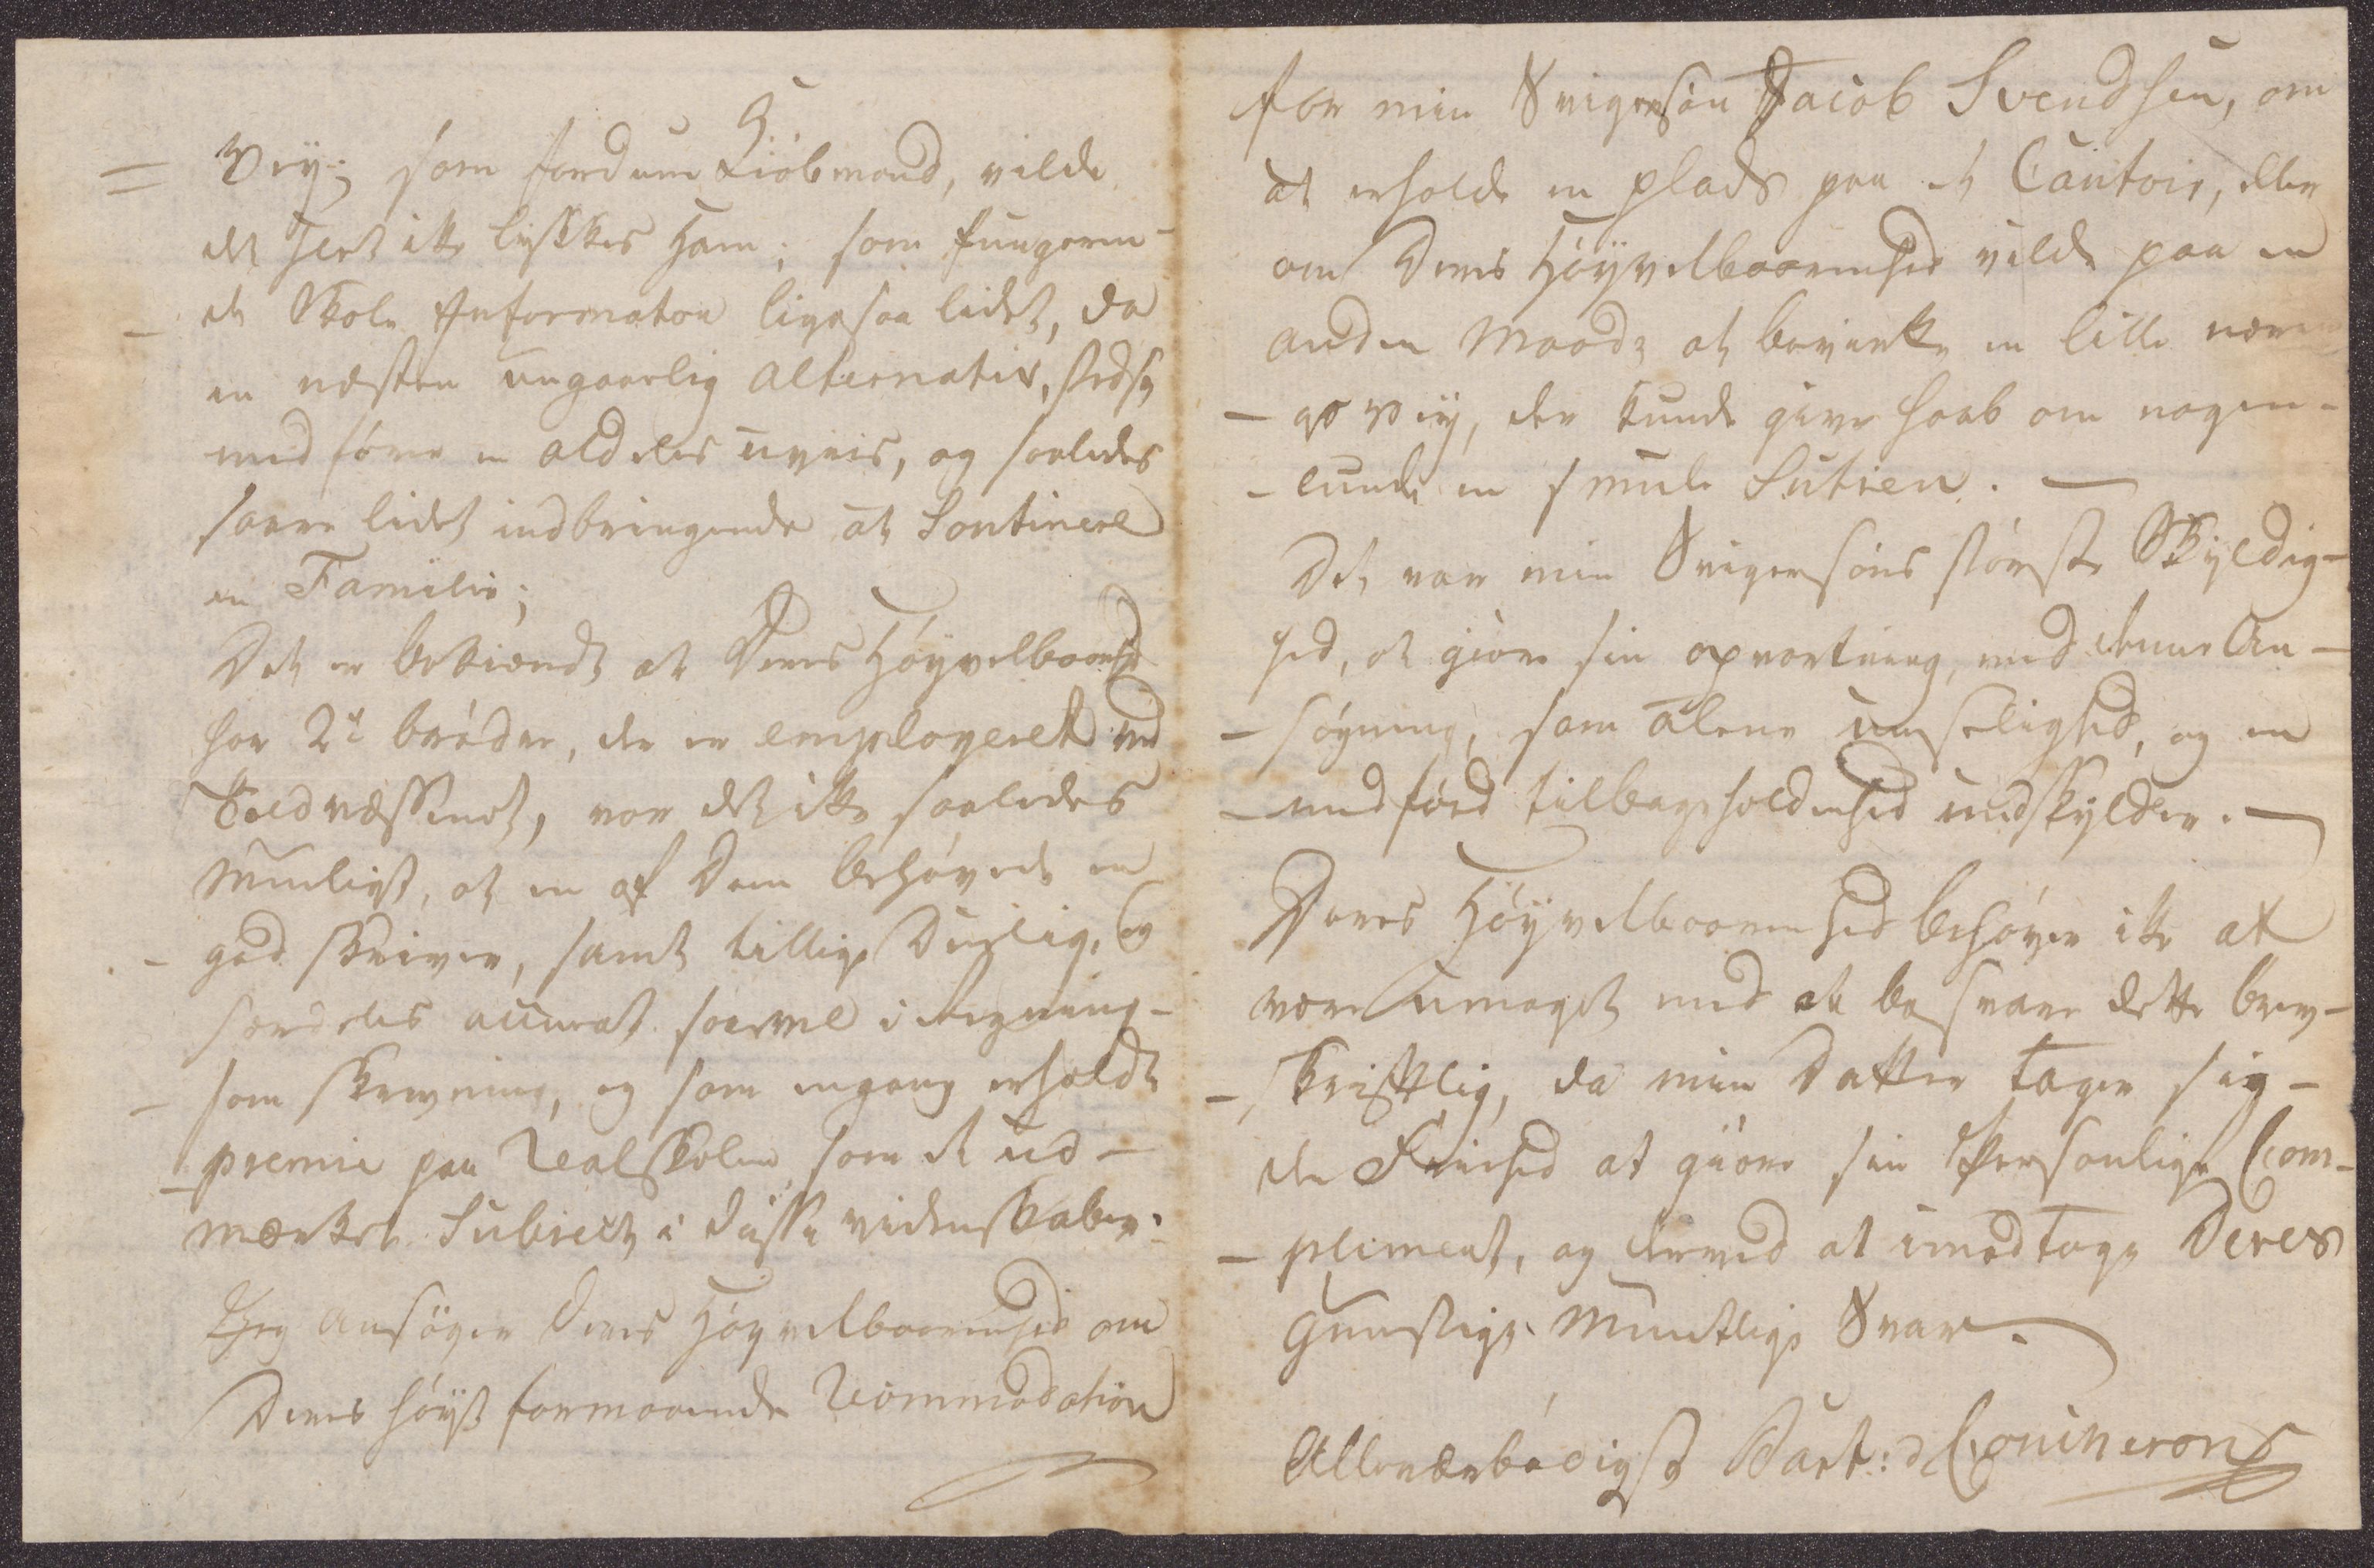 = Vej; som fordum Kiöbmand, vilde
det heel ikke lykkes ham; som fungeren-
- de Skole Informator ligesaa lidet, da
en næsten umaarlig alternativ, stedse
medföre en aldeles uvis, og saaledes
saare lidet indbringende at Soutinere
en Familie;
Det er bekiendt at Deres Höyvelbaarenhed
har 2de brödre, der er employeret ved
Toldvæssenet, var det ikke saaledes
mueligt, at en af Dem behövede en
- god skriver, samt tillige Duelig, og
særdeles accurat saavel i Regning-
- som skrivning, og som engang erholdt
- premie paa Realskolen som et ud-
mærket Subiect i disse videnskaber.
Jeg ansöger Deres Höyvelbaarenhed om
Deres höyst formaaende Recommendation
for min Svigersön Jacob Svendsen, om
at erholde en plads paa et Contoir, eller
om Deres Höyvelbaarenhed vilde paa en
anden Maade at bevirke en lille nærin
- gs vej, der kunde give haab om nogen-
- lunde en smule Sutien. —
Det var min Svigersöns störste Skyldig-
hed, at giöre sin opvartning, med denne An-
- sögning, som alene undselighed, og en
- medföd tilbageholdenhed undskylder. —
Deres Höyvelbaarenhed behöver ikke at
være umaget med at besvare dette brev-
- skriftlig, da min Datter tager sig-
den Friehed at giöre sin Personlige Com-
- pliment, og derved at imodtage Deres
Gunstige Mundtlige Svar.
Allerærbödigst Bart: d Coninerong